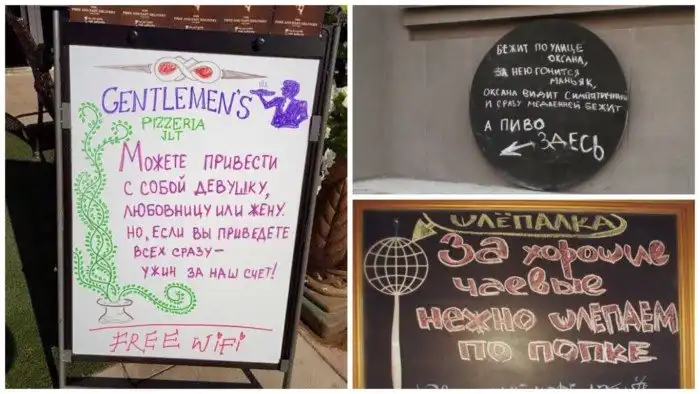 GENTLEMEN'S
PIZZERIA
JLT
МОЖЕТЕ ПРИВЕСТИ
С СОБОЙ ДЕВУШКУ,
ЛЮБОВНИЦУ ИЛИ ЖЕНУ.
НО, ЕСЛИ ВЫ ПРИВЕДЕТЕ
ВСЕХ СРАЗУ –
УЖИН ЗА НАШ СЧЕТ!
FREE WiFi
БЕЖИТ ПО УЛИЦЕ
ОКСАНА,
ЗА НЕЮ ГОНИТСЯ
МАНЬЯК,
ОКСАНА ВИДИТ
И СРАЗУ МЕДЛЕННЕЙ БЕЖИТ
А ПИВО
ЗДЕСЬ
ШЛЁПАЛКА
За хорошие
чаевые
нежно шлёпаем
по попке